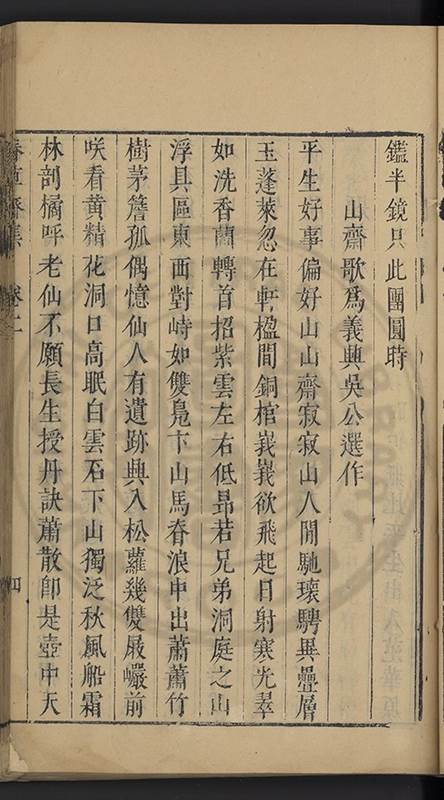 鑑半鏡只此團圓時
山齋歌爲義興吳公選作
平生好事偏好山山齋寂寂山人閒馳瓌騁異疊層
玉蓬萊忽在軒楹間銅棺峩峩欲飛起日射寒光翠
如洗香蘭轉首招紫雲左右低昻若兄弟洞庭之山
浮具區東西對峙如雙鳬卞山馬脊浪中出蕭蕭竹
樹茅簷孤偶憶仙人有遺跡興入松蘿幾雙屐巖前
咲看黄精花洞口高眠白雲石下山獨泛秋風船霜
林剖橘呼老仙不願長生授丹訣蕭散卽是壺中天
齋集 卷二 四